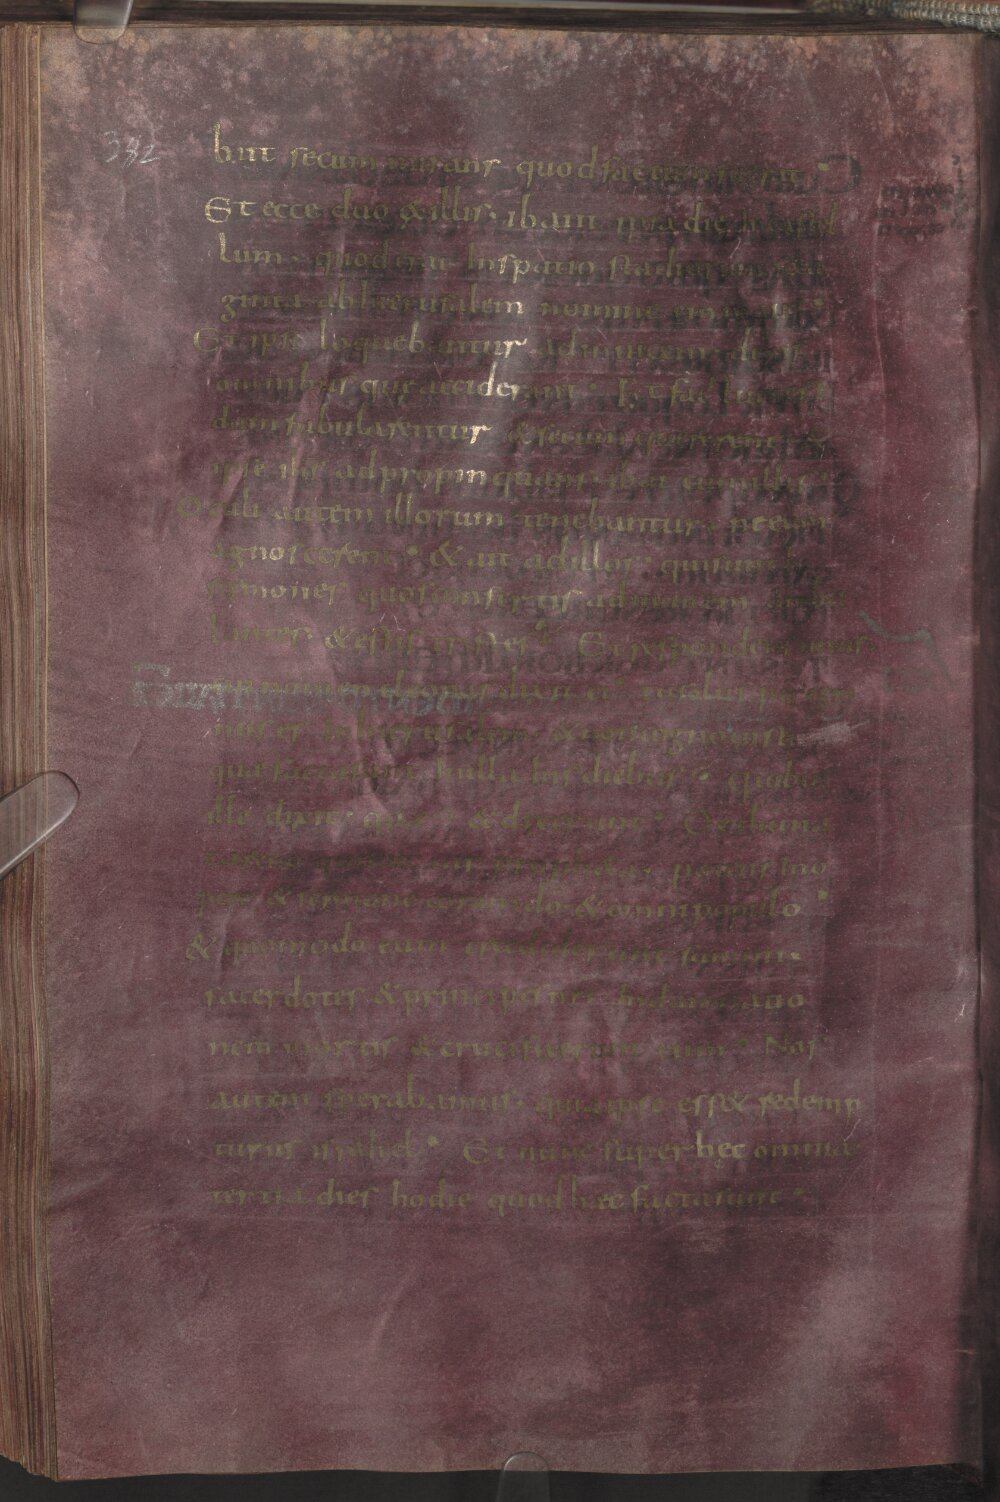 282
biit secum mirans quod factum fuerat.
Et ecce duo ex illis ibant ipsa die in castel
lum quod erat in spatio stadiorum sexa
ginta ab hierusalem nomine emmaus.
Et ipsi loquebantur ad invicem de his
omnibus que acciderant. Et fac
dum fabularentur & secum quererent &
ipse ihs adpropinquans ibat cum illis.
Oculi autem illorum tenebantur ne eum
agnoscerent. & ait ad illos. qui sunt hi
sermones quos confertis ad invicem
lantes. & estis tristes. Et respondens unus
cui nomen cleopas dixit ei. tu solus pere
nus es in hierusalem & non cognovisti
quae facta sunt in illa his diebus. Quibus
ille dixit. quae. & dixerunt.
propheta. potens ino
pere & sermone coram do & omni populo.
& quomodo eum tradiderunt summi
sacerdotes & principes nri in damnatio
nem mortis & crucifixerunt eum. Nos
autem sperabamus. quia ipse ess& redemp
turus israhel. Et nunc super hęc omnia
tertia dies hodie quod hęc facta sunt.